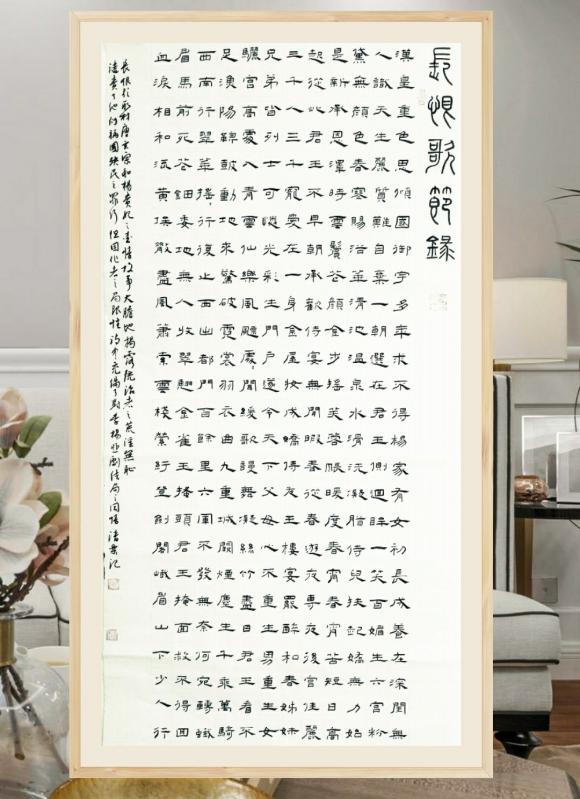 長恨歌節錄
漢皇重色思傾國御宇多年求不得楊家有女初長成養在深閨無
人識天生麗質難自棄一朝選在君王側迴眸一笑百媚生六宮粉
黛無顏色春寒賜浴華清池溫泉水滑洗凝脂侍兒扶起嬌無力始
是新承恩澤時雲鬢花顏金步搖芙蓉帳暖度春宵春宵苦短日高
起從此君王不早朝承歡侍宴無閒暇春從春遊夜專夜後宮佳麗
三千人三千寵愛在一身金屋妝成嬌侍夜玉樓宴罷醉和春姊妹
兄弟皆列土可憐光彩生門戶遂令天下父母心不重生男重生女
驪宮高處入青雲仙樂風飄處〻聞緩歌謾舞凝絲竹盡日君王看不
足漁陽鼙鼓動地來驚破霓裳羽衣曲九重城闕煙塵生千乘萬騎
西南行翠華搖〻行復止西出都門百餘里六軍不發無奈何宛轉蛾
眉馬前死花鈿委地無人收翠翹金雀玉搔頭君王掩面救不得回
血淚相和流黃埃散盡風蕭索雲棧縈紆登劍閣峨眉山下少人行
長恨歌取材唐玄宗和楊貴妃之愛情故事大膽地揭露統治者之荒淫無恥
譴責了他们禍國殃民之罪行但因作者之局限性詩中充滿了對李楊悲劇結局之同情